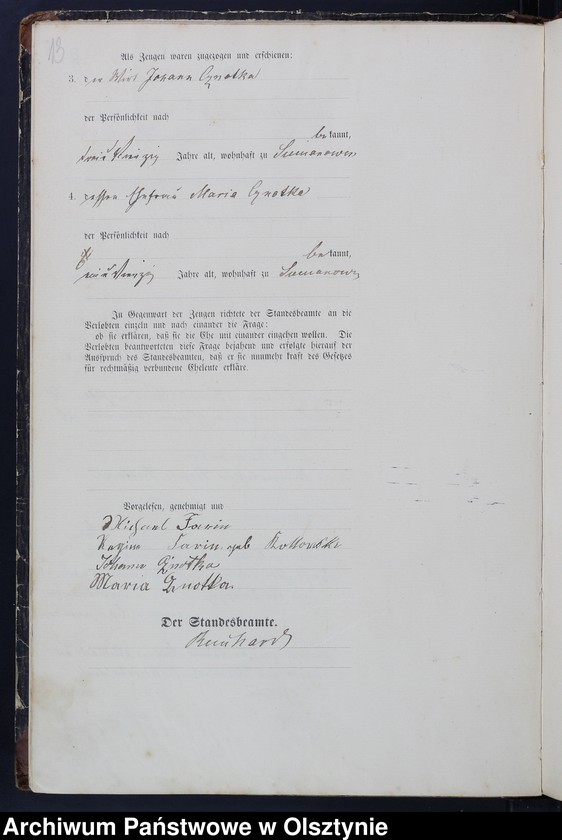 13
Als Zeugen waren zugezogen und erschienen:
3. der Wirt Johann Gnotka
der Persönlichkeit nach
bekannt,
Jahre alt, wohnhaft zu
4. dessen Ehefrau Maria Gnotka
der Persönlichkeit nach
bekannt,
Jahre alt, wohnhaft zu
In Gegenwart der Zeugen richtete der Standesbeamte an die
Verlobten einzeln und nach einander die Frage:
ob sie erklären, daß sie die Ehe mit einander eingehen wollen. Die
Verlobten beantworteten diese Frage bejahend und erfolgte hierauf der
Ausspruch des Standesbeamten, daß er sie nunmehr kraft des Gesetzes
für rechtmäßig verbundene Eheleute erkläre.
Vorgelesen, genehmigt und
Michael
Regina geb
Johann Gnotka
Maria Gnotka
Der Standesbeamte.
Archiwum Państwowe w Olsztynie